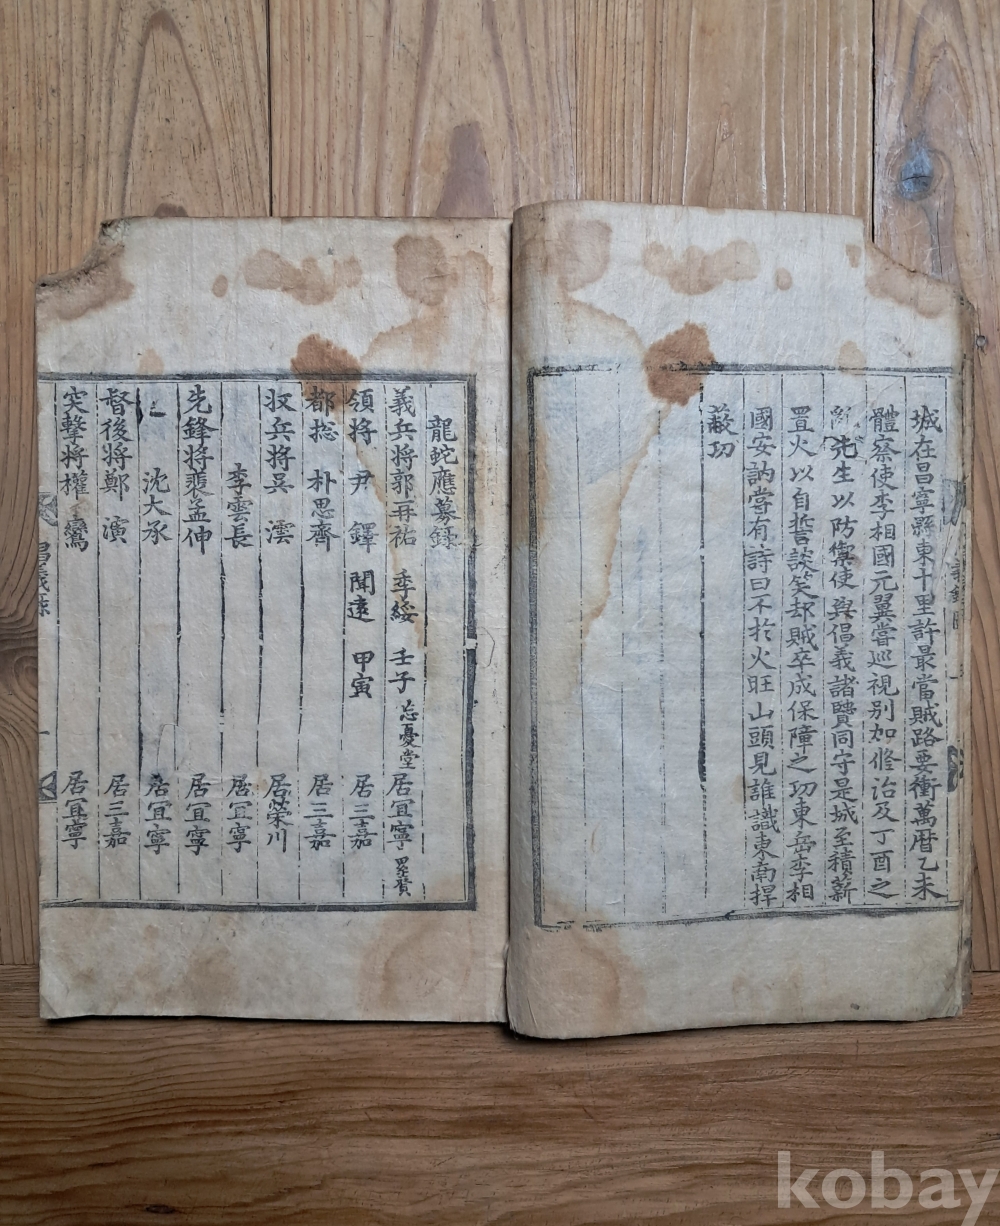 城在昌寧縣東十里許最當賊路要衝萬曆乙未
體察使李相國元翼嘗巡視別加修治及丁酉之
亂先生以防禦使與倡義諸賢同守是城至積薪
置火以自誓談笑却賊卒成保障之功東岳李相
國安訥嘗有詩曰不於火旺山頭見誰識東南捍
蔽功
龍蛇應募錄
義兵將郭再祐 季綏 壬子 忘憂堂 居宜寧
領將 尹鐸 聞遠 甲寅 居三嘉
都捴 朴思齊 居三嘉
收兵將吳澐 居榮川
李雲長 居宜寧
先鋒將裵孟伸 居宜寧
沈大承 居宜寧
督後將鄭演 居三嘉
突擊將權鸞 居宜寧
倡義錄
kobay